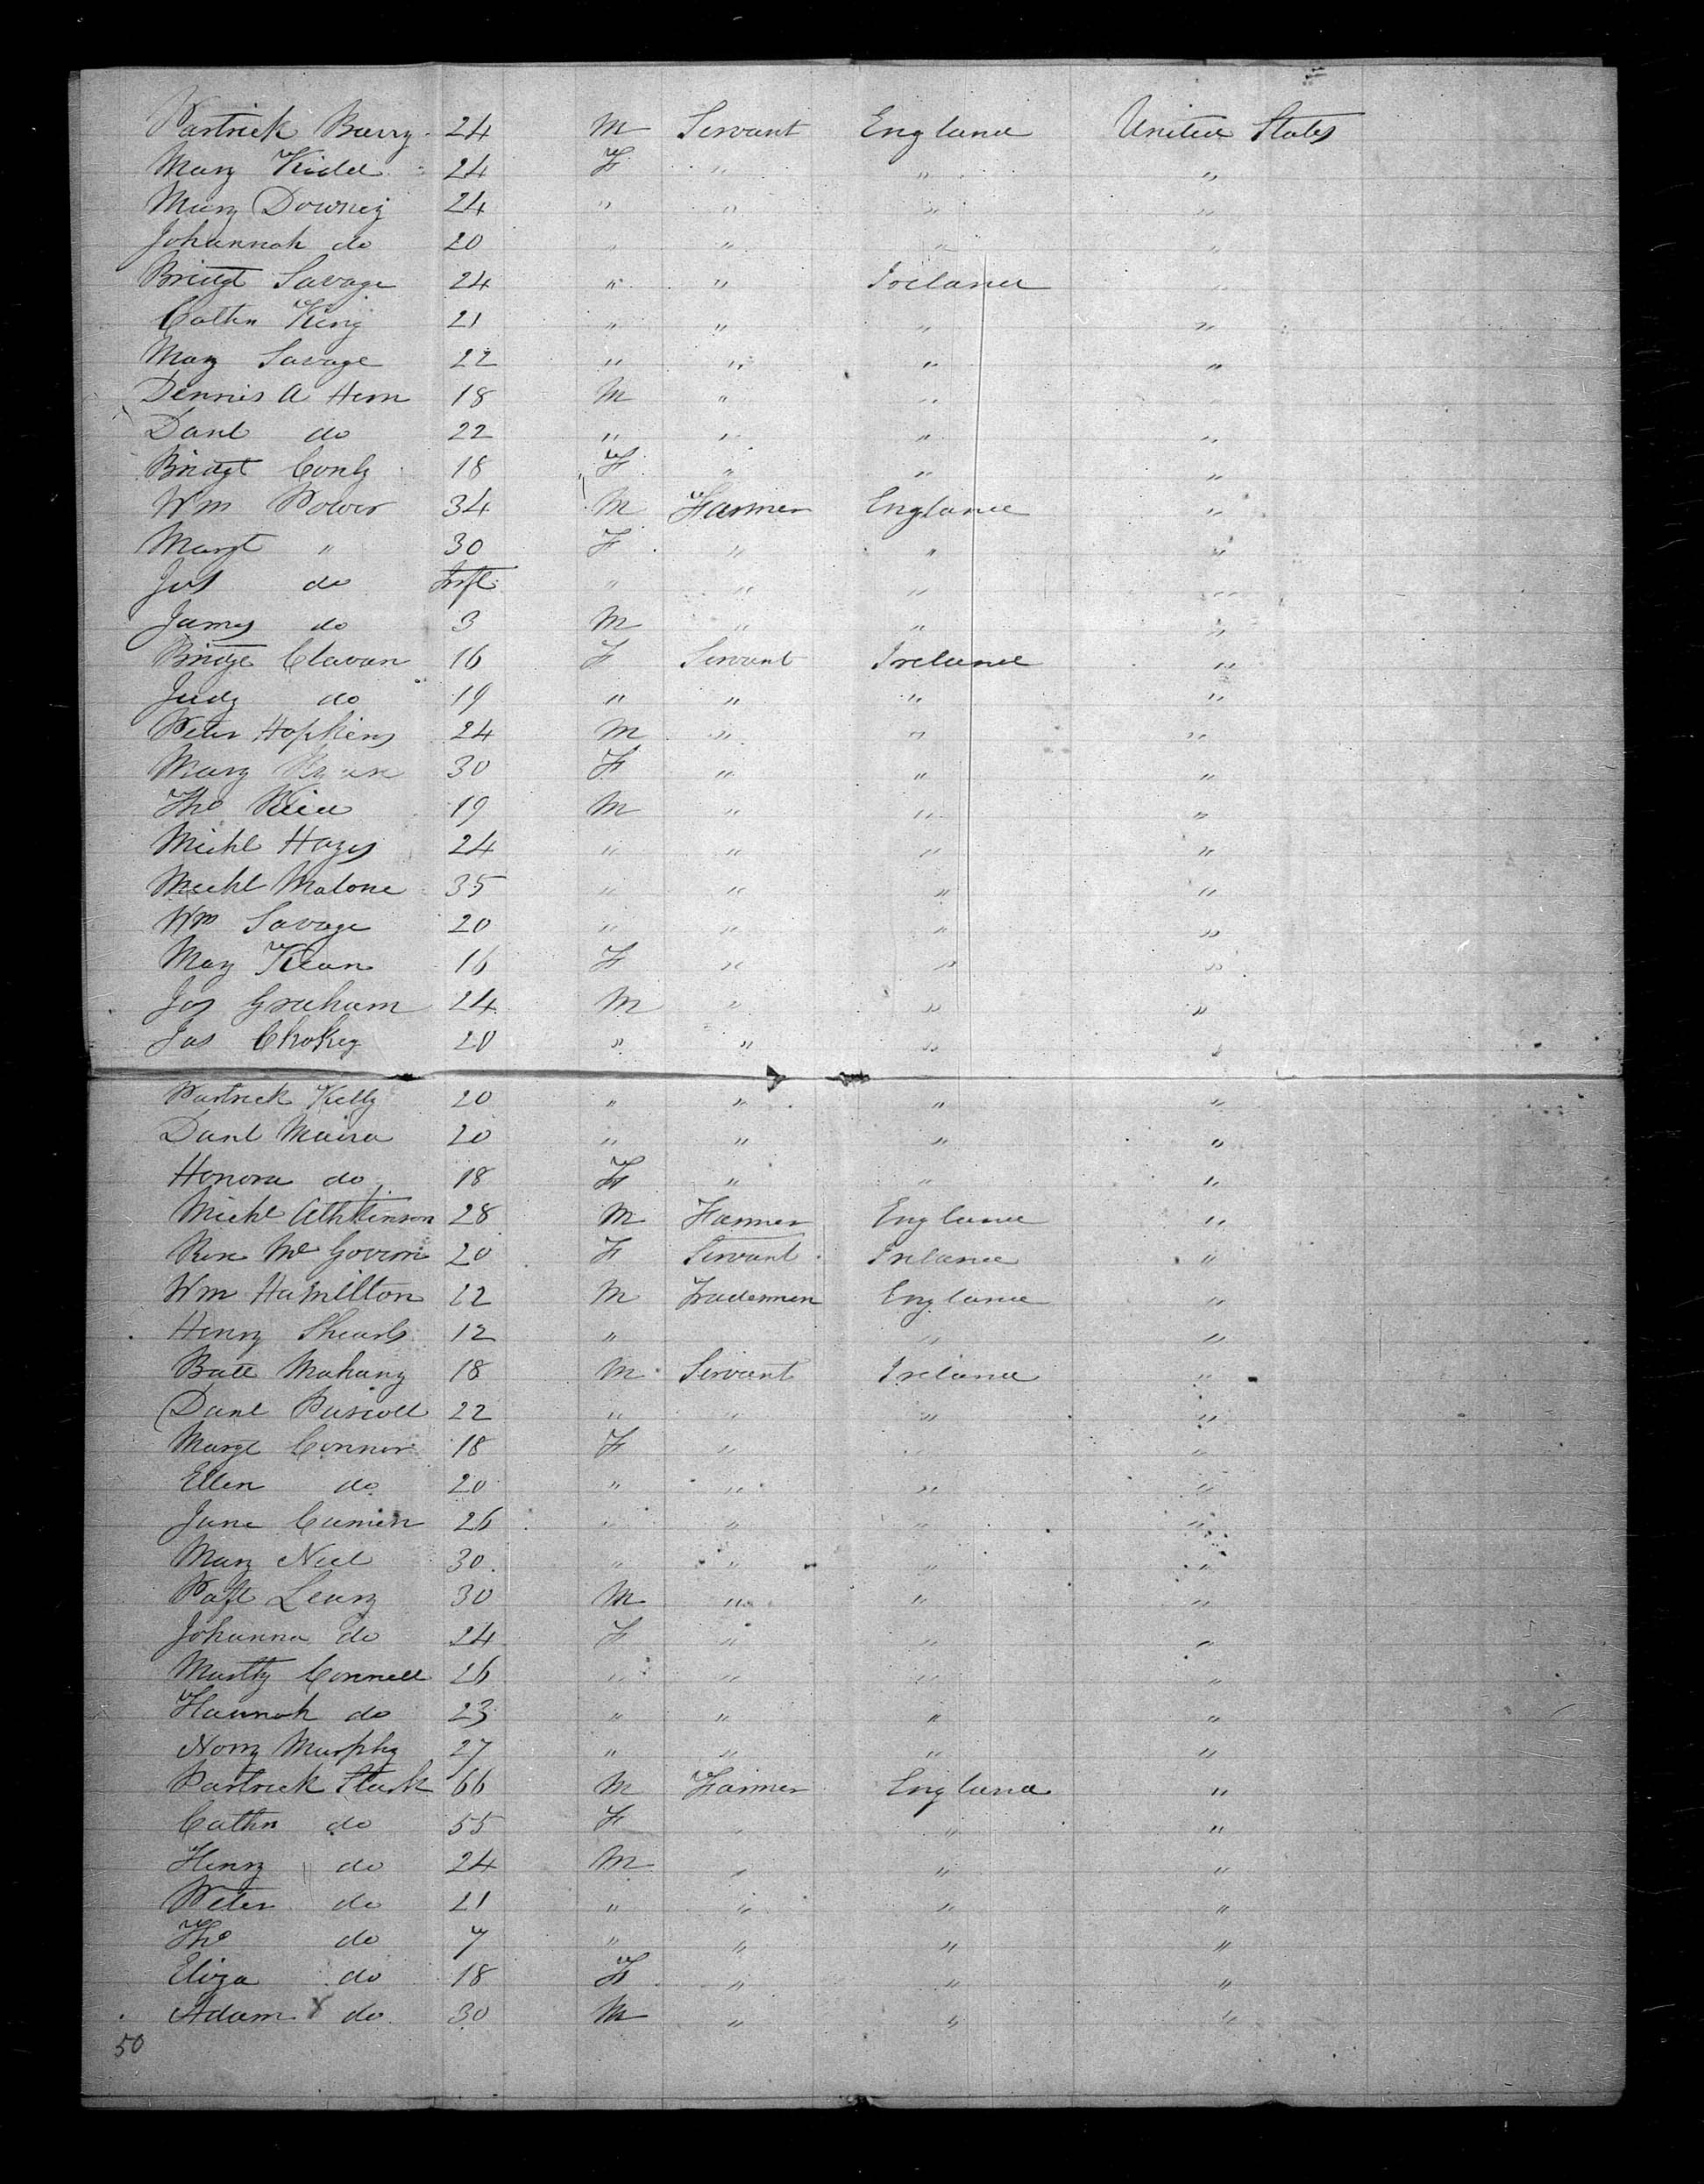 Partrick Barry 24 M Servant England United States
Mary Kidd 24 F " " "
Mary Downey 24 " " " "
Johannah do 20 " " " "
Bridgt Savage 24 " " Ireland "
Cathn King 21 " " " "
Mary Savage 22 " " " "
Dennis A Hern 18 M " " "
Danl do 22 " " " "
Bridgt Conly 18 F " " "
Wm Power 34 M Farmer England "
Margt " 30 F " " "
Jos do Inft " " " "
James do 3 M " " "
Bridge Clavan 16 F Servant Ireland "
Judy do 19 " " " "
Peter Hopkins 24 M " " "
Mary 30 F " " "
Tho 19 M " " "
Michl Hays 24 " " " "
Michl Malone 35 " " " "
Wm Savage 20 " " " "
Mary Kean 16 F " " "
Jos Graham 24 M " " "
Jas Chokey 20 " " " "
Partrick Kelly 20 " " " "
Danl Maira 20 " " " "
Honora do 18 F " " "
Michl Athkinson 28 M Farmer England "
Rose Mc Govern 20 F Servant Ireland "
Wm Hamillton 22 M Trademen England "
Henry Shearls 12 " " "
Batt Mahany 18 M Servant Ireland "
Danl 22 " " " "
Margt Connor 18 F " " "
Ellen do 20 " " " "
Jane Cumin 26 " " " "
Mary Neil 30 " " " "
Patt Leary 30 M " " "
Johanna do 24 F " " "
Matty Connell 26 " " " "
Hannah do 23 " " " "
Norry Murphy 27 " " " "
Partrick 66 M Farmer England "
Cathn do 55 F " " "
Henry do 24 M " " "
Peter do 21 " " " "
Tho do 7 " " " "
Eliza do 18 F " " "
Adam do 30 M " " "
50